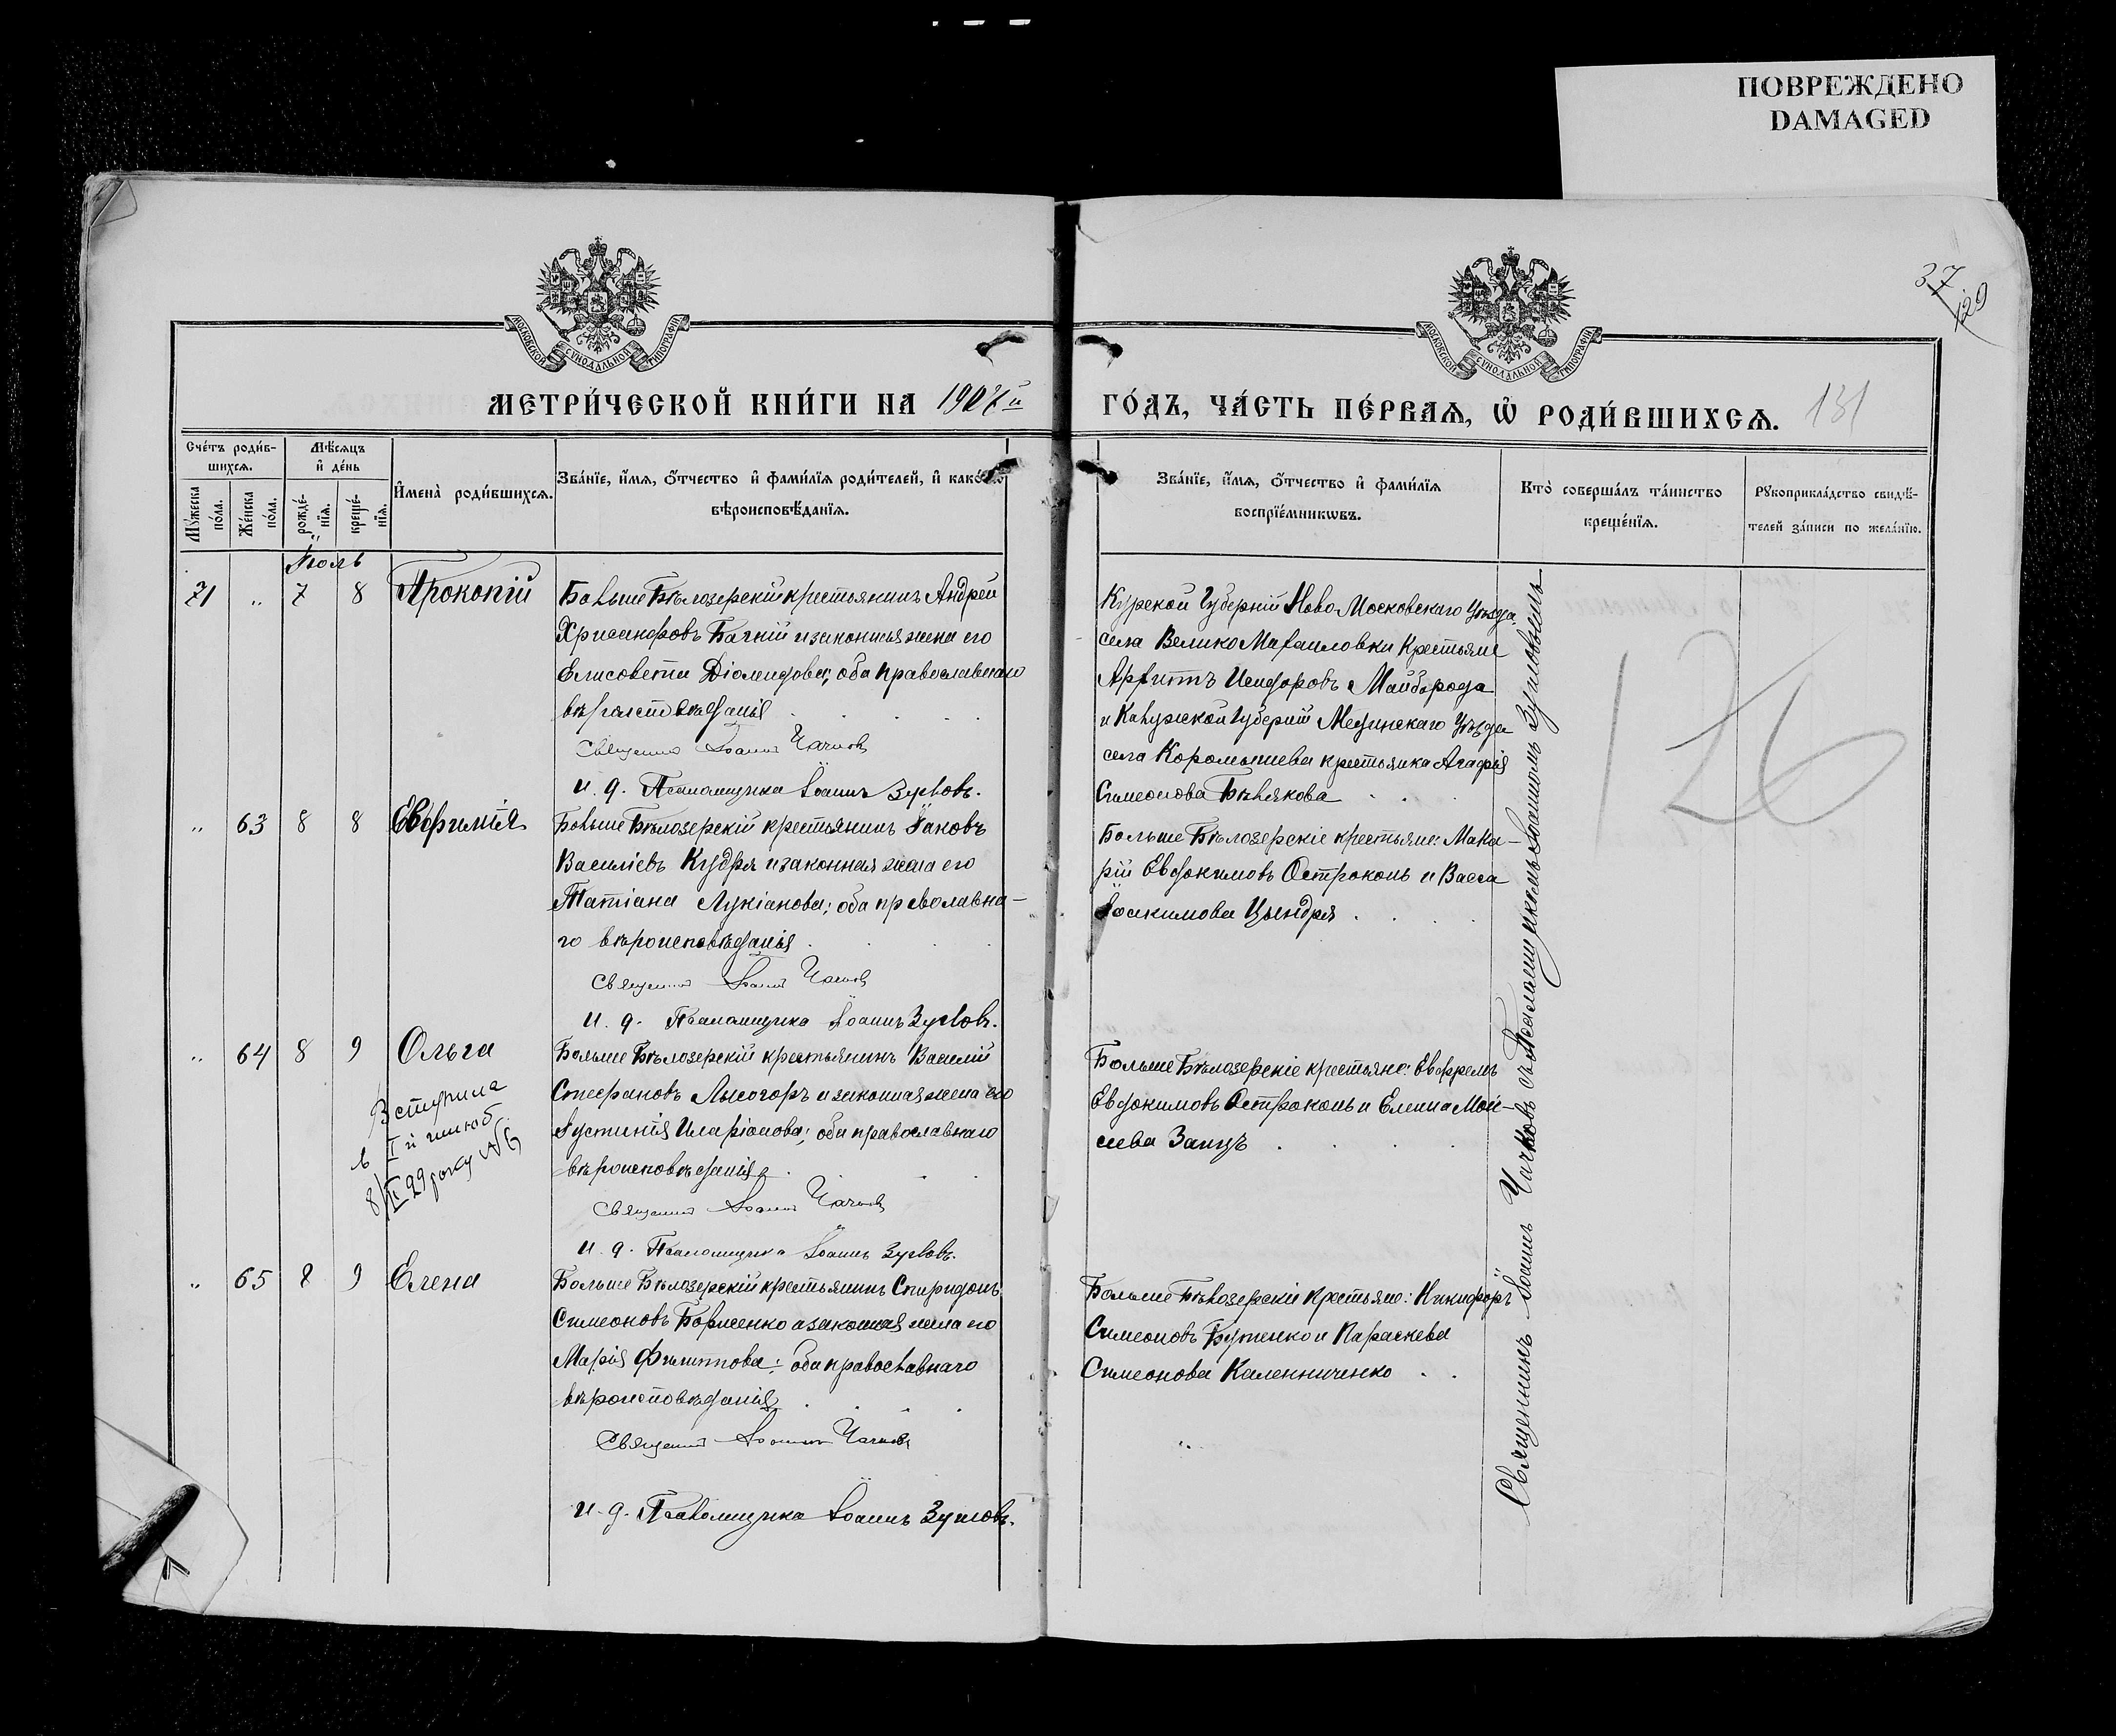 ПОВРЕЖДЕНО
DAMAGED
37
129
МОСКОВСКОЙ СѴНОДАЛЬНОЙ ТИПОГРАФІИ
МОСКОВСКОЙ СѴНОДАЛЬНОЙ ТИПОГРАФІИ
МЕТРИ́ЧЕСКОЙ КНИ́ГИ НА 1907й ГО́ДЪ, ЧА́СТЬ ПЕ́РВАѦ, Ѡ҆ РОДИ́ВШИХСѦ. 131
Сче́тъ роди́в-
шихсѧ.
Мѣ́сѧцъ
и҆ де́нь
Мꙋ́жеска по́ла.
Же́нска по́ла.
рожде́-
нїѧ.
креще́-
нїѧ.
И҆мена̀ роди́вшихсѧ.
Зва́нїе, и҆́мѧ, ѻ҆́тчество и҆ фами́лїѧ роди́телей, и҆
вѣроисповѣ́данїѧ.
Зва́нїе, и҆́мѧ, ѻ҆́тчество и҆ фами́лїѧ
воспрїе́мникѡвъ.
Кто̀ соверша́лъ та́инство
креще́нїѧ.
Рꙋкоприкла́дство свидѣ́-
телей за́писи по жела́нїю.
Іюль
71 " 7 8 Прокопій
Больше Бѣлозерскій крестьянинъ Андрей
Хрисанфовъ Бачкій и законная жена его
Елисавета Діомидова; оба православнаго
вѣроисповѣданія
Священникъ Іоаннъ Чачковъ
и. д. Псаломщика Іоаннъ Зусловъ.
Курской Губерніи Ново Московскаго Уѣзда,
села Велико Михаиловки Крестьяне
Архиппъ Исидоровъ Майборода
и Калужской Губерніи Медынскаго Уѣзда
села Коромышева крестьянка Агафія
Симеонова Бѣлякова
" 63 8 8 Евфимія
Больше Бѣлозерскій крестьянинъ Іаковъ
Василіевъ Кудря и законная жена его
Татіана Лукіанова; оба православна-
го вѣроисповѣданія
Священникъ Іоаннъ Чачковъ
и. д. Псаломщика Іоаннъ Зусловъ.
Больше Бѣлозерскіе крестьяне: Мака-
рій Евдокимовъ Остроконь и Васса
Іоакимова Цындря
" 64 8 9 Ольга
Вступила
в І й шлюб
8/ІІ 29 року №6
Больше Бѣлозерскій крестьянинъ Василій
Стефановъ Лысогоръ и законная жена его
Іустинія Иларіонова; оба православнаго
вѣроисповѣданія
Священникъ Іоаннъ Чачковъ
и. д. Псаломщика Іоаннъ Зусловъ.
Больше Бѣлозерскіе крестьяне: Ефремъ
Евдокимовъ Остроконь и Елена Мой-
сіева Заицъ
" 65 8 9 Елена
Больше Бѣлозерскій крестьянинъ Спиридонъ
Симеоновъ Борисенко и законная жена его
Марія Филиппова; оба православнаго
вѣроисповѣданія
Священникъ Іоаннъ Чачковъ
и. д. Псаломщика Іоаннъ Зусловъ.
Больше Бѣлозерскіе крестьяне: Никифоръ
Симеоновъ Бутенко и Параскева
Симеонова Каленниченко
Священникъ Іоаннъ Чачковъ съ Псаломщикомъ Іоанномъ Зусловымъ
126